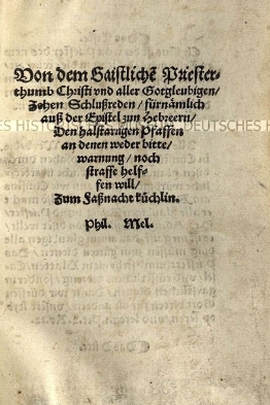 Von dem Gaistlichē Priester-
thumb Christi vnd aller Gotgleubigen/
Zehen Schlußreden/ fürnämlich
auß der Epistel zun Hebreern/
Den halstarrigen Pfaffen
an denen weder bitte/
warnung/ noch
straffe helf-
fen will/
Zum Faßnacht küchlin.
Phil. Mel.